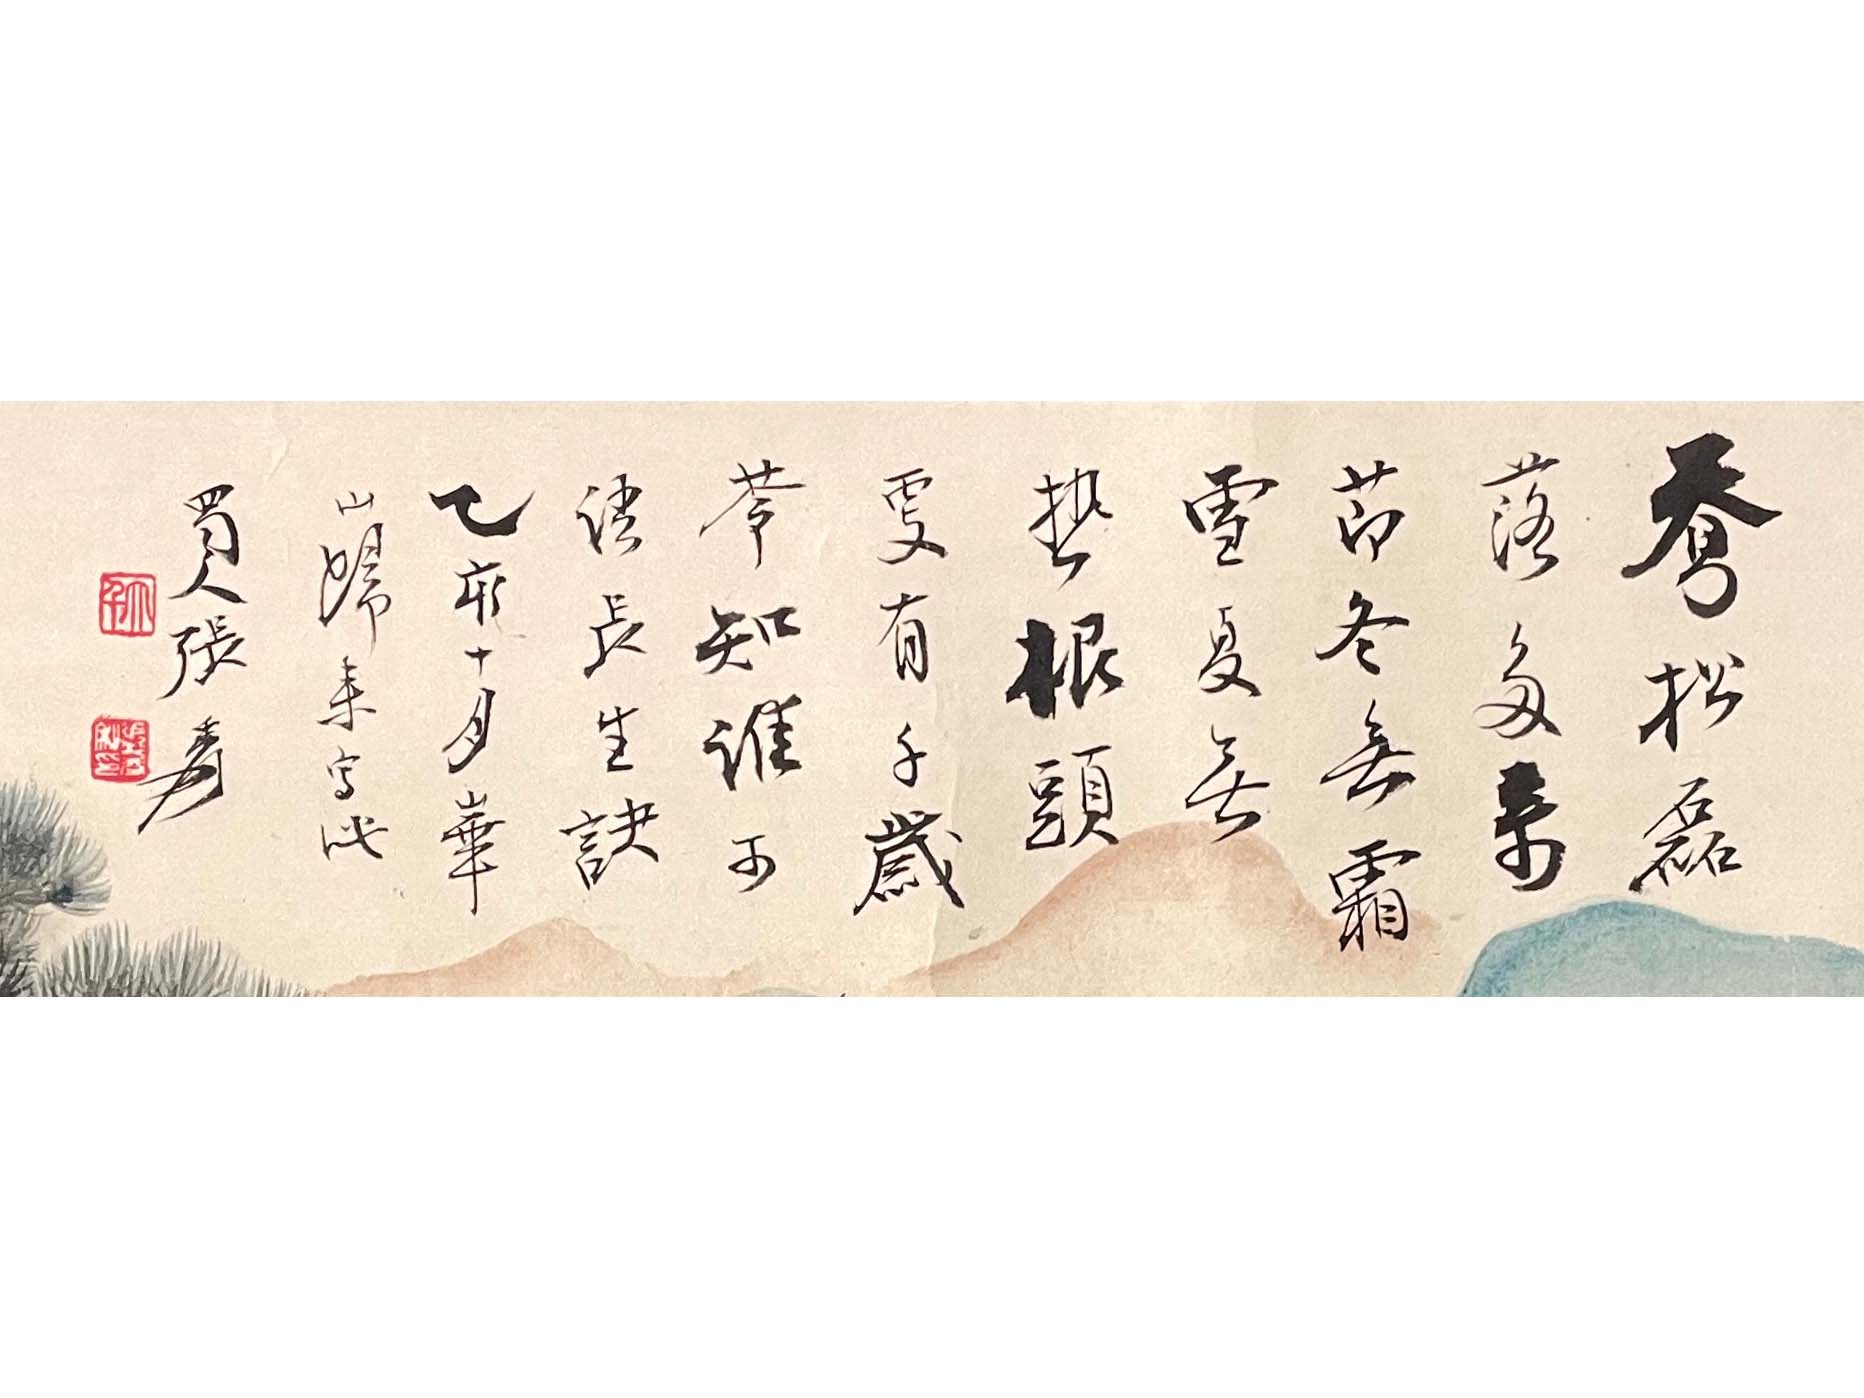 喬松磊
落多奇
莭冬無霜
雪夏無
熱根頭
更有千歲
苓知誰可
語長生訣
乙亥十月華
山歸来寫此
蜀人張爰
大千